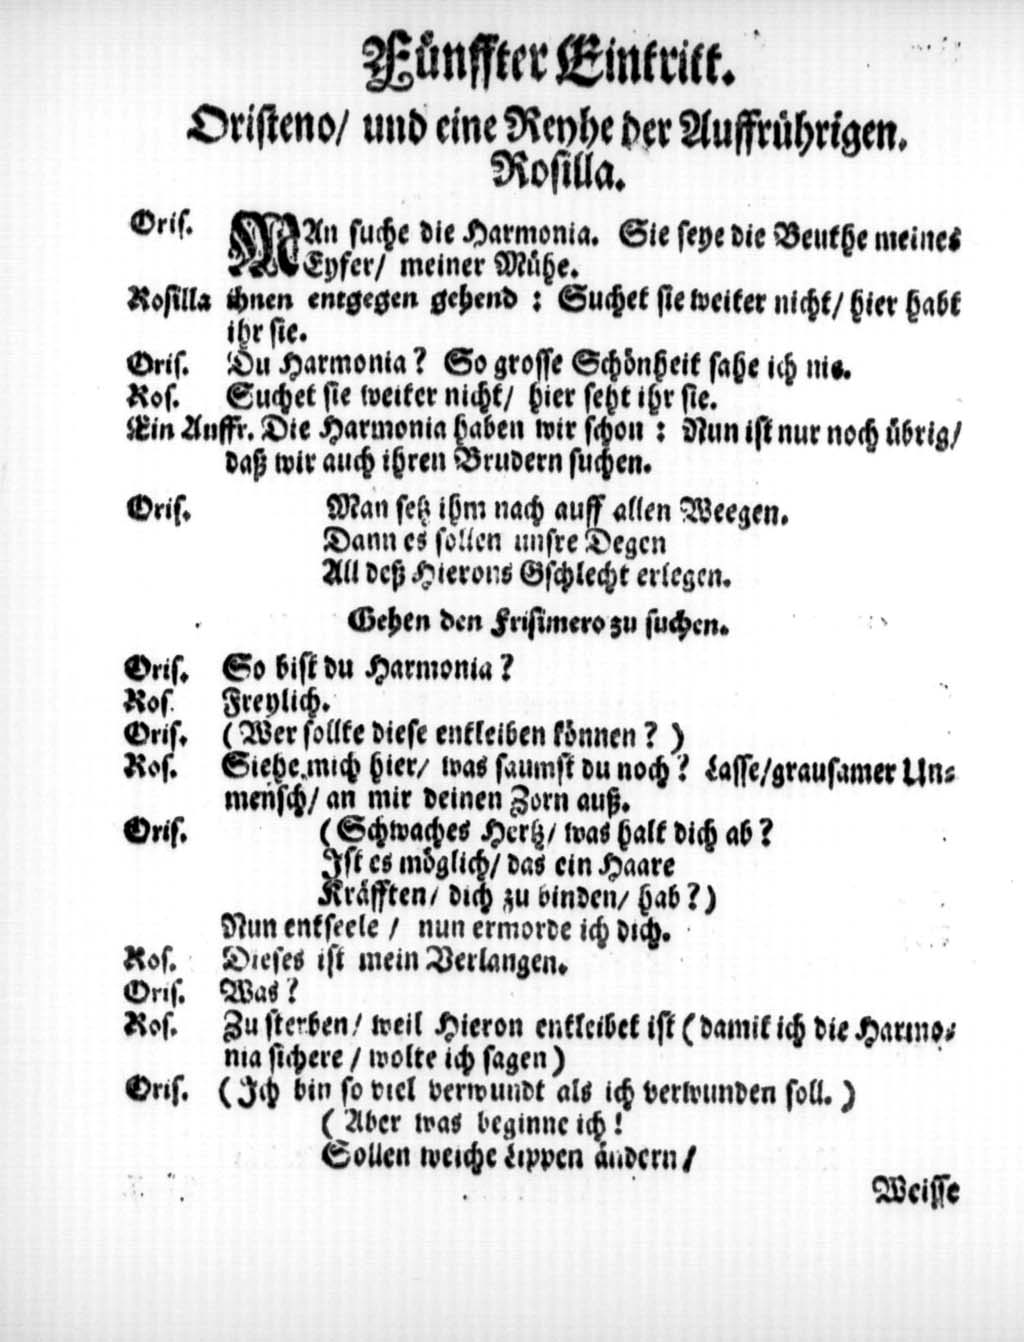 Fünffter Eintritt.
Oristeno/ und eine Reyhe der Auffrührigen.
Rosilla.
Oris. MAn suche die Harmonia. Sie seye die Beuthe meines
Eyfer/ meiner Mühe.
Rosilla ihnen entgegen gehend : Suchet sie weiter nicht/ hier habt
ihr sie.
Oris. Du Harmonia ? So grosse Schönheit sahe ich nie.
Ros. Suchet sie weiter nicht/ hier seht ihr sie.
Ein Auffr. Die Harmonia haben wir schon : Nun ist nur noch übrig/
daß wir auch ihren Brudern suchen.
Oris. Man setz ihm nach auff allen Weegen.
Dann es sollen unsre Degen
All deß Hierons Gschlecht erlegen.
Gehen den Frisimero zu suchen.
Oris. So bist du Harmonia ?
Ros. Freylich.
Oris. ( Wer sollte diese entleiben können ? )
Ros. Siehe mich hier/ was saumst du noch ? Lasse/grausamer Un-
mensch/ an mir deinen Zorn auß.
Oris. ( Schwaches Hertz/ was halt dich ab ?
Ist es möglich/ das ein Haare
Kräfften/ dich zu binden/ hab ? )
Nun entseele / nun ermorde ich dich.
Ros. Dieses ist mein Verlangen.
Oris. Was ?
Ros. Zu sterben/ weil Hieron entleibet ist ( damit ich die Harmo-
nia sichere / wolte ich sagen )
Oris. ( Ich bin so viel verwundt als ich verwunden soll. )
( Aber was beginne ich !
Sollen weiche Lippen ändern /
Weisse